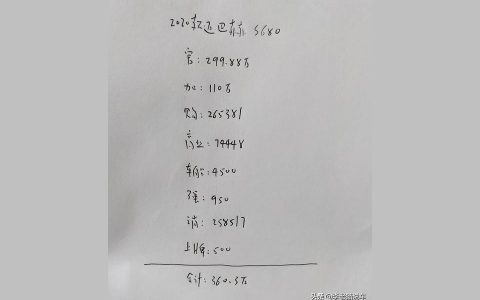 2020款迈巴赫 S680
官：299.88万
加：110万
购：265381
商业：74448
车船：4500
强：950
消：258517
上牌：500
合计：360.3万
头条